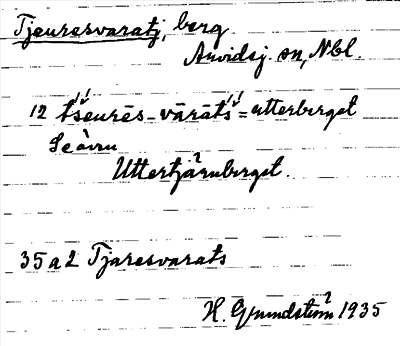 Tjeuresvaratj, berg
Arvidsj. sn, Nbl.
12 tśeurēs-vārātś = utterberget
Utterjärnberget.
35 a 2 Tjaresvarats
H. Grundström 1935